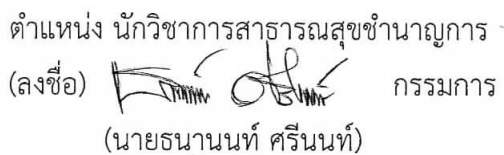 ตำแหน่ง นักวิชาการสาธารณสุขชำนาญการ
(ลงชื่อ) กรรมการ
(นายธนานนท์ ศรีนนท์)